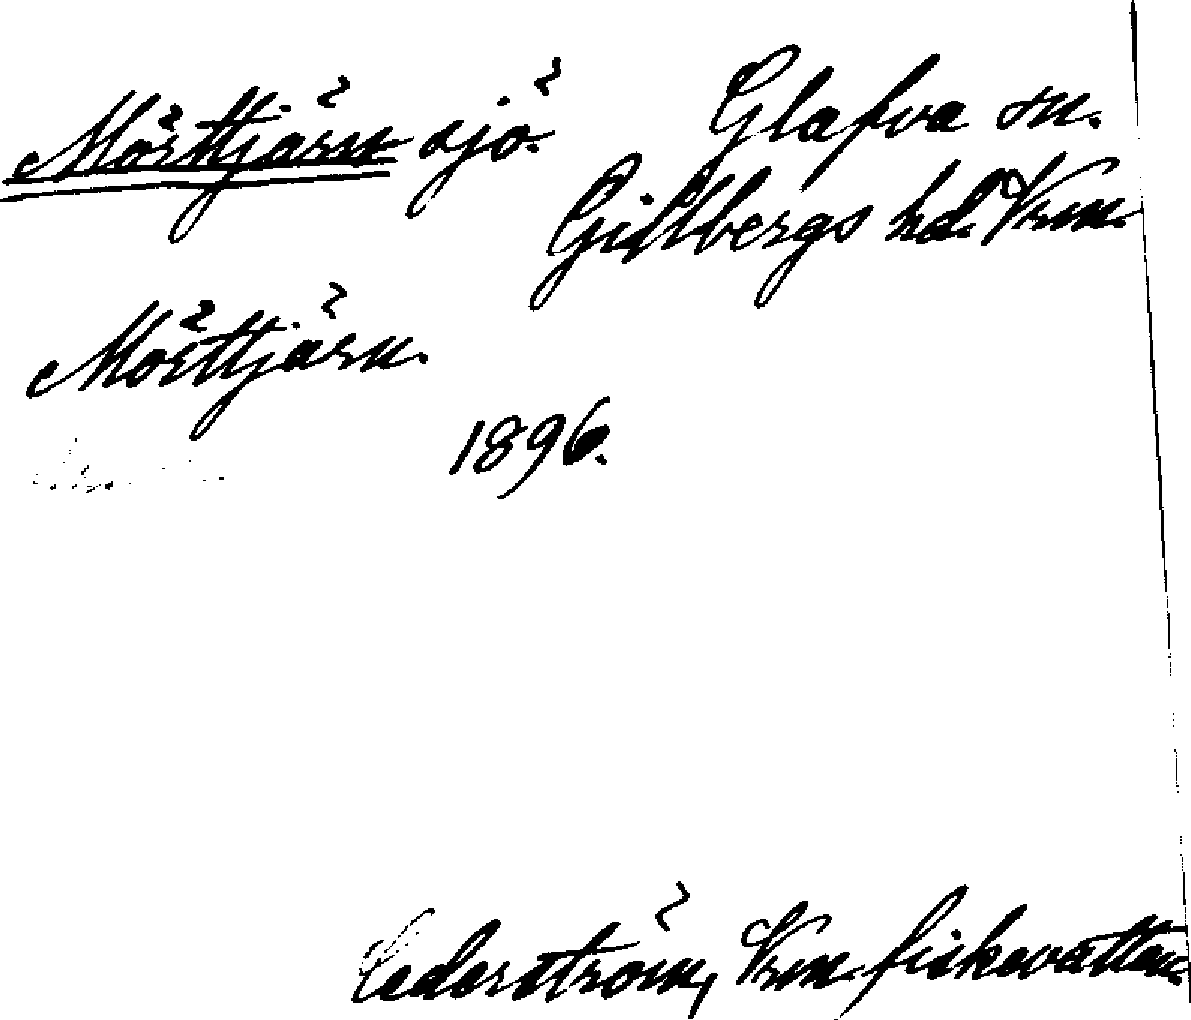 Mörttjärn sjö. Glafva sn.
Gillbergs hd. Vrm.
Mörttjärn.
1896.
Cederström, Vrm fiskevatten